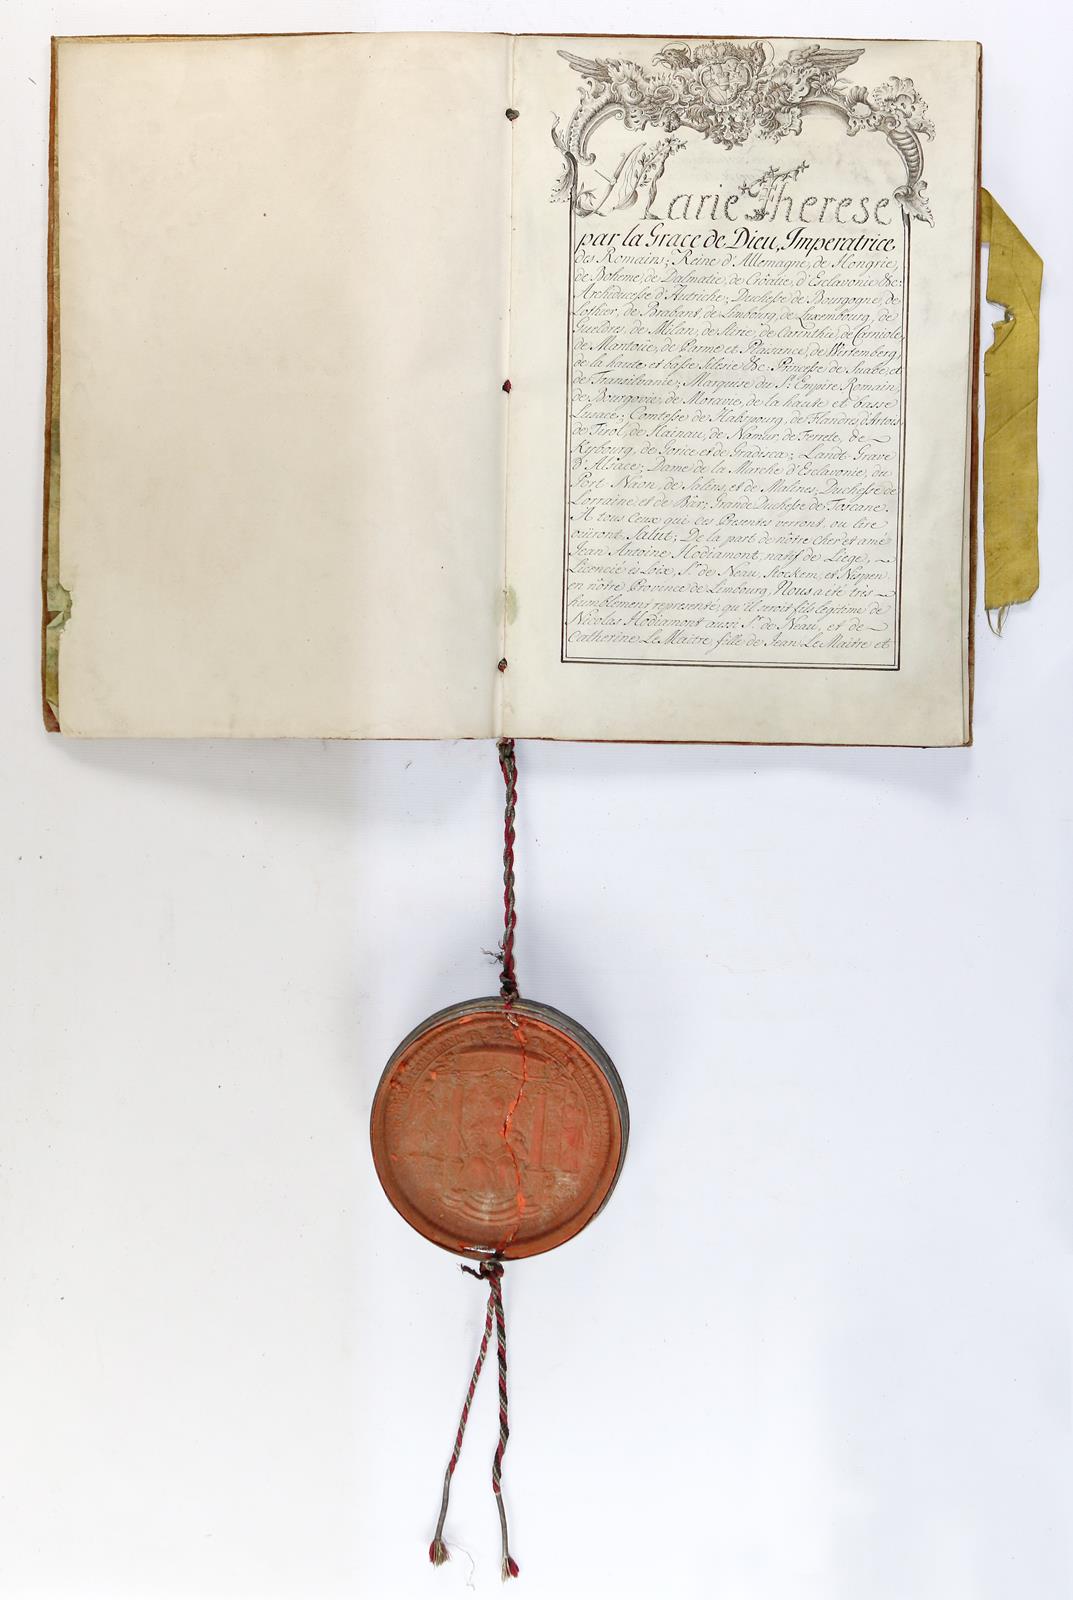 Marie Therese
par la Grace de Dieu, Imperatrice
des Romains; Reine d'Allemagne, de Hongrie,
de Boheme, de Dalmatie, de Crôatie, d'Esclavonie &c:
Archiducesse d'Autriche; Duchesse de Bourgogne, de
Lothier, de Brabant, de Limbourg, de Luxembourg, de
Gueldres, de Milan, de Stirie, de Carinthie, de Carniole,
de Mantoüe, de Parme et Plaisance, de Wirtemberg,
de la haute et basse Silesie &c: Princesse de Suabe, et
de Transilvanie; Marquise du St. Empire Romain,
de Bourgovie, de Moravie, de la haute et basse
Lusace; Comtesse de Habspourg, de Flandres, d'Artois
de Tirol, de Hainau, de Namur, de Ferrete, de
Kybourg, de Gorice et de Gradisca; Landt-Grave
d'Alsace; Dame de la Marche d'Esclavonie, du
Port Naon, de Salins, et de Malines, Duchesse de
Lorraine et de Bar; Grande Duchesse de Toscane.
A tous Ceux qui ces Presentes verront, ou lire
oüiront, Salut; De la part de nôtre cher et amé
Jean Antoine Hodiamont, natif de Liege,
Licencié ès Loix, Sr. de Neau, Stockem, et Nispen
en nôtre Province de Limbourg, Nous a été très
humblement representé, qu'il seroit fils legitime de
Nicolas Hodiamont aussi Sr. de Neau, et de
Catherine Le Maitre, fille de Jean Le Maitre et